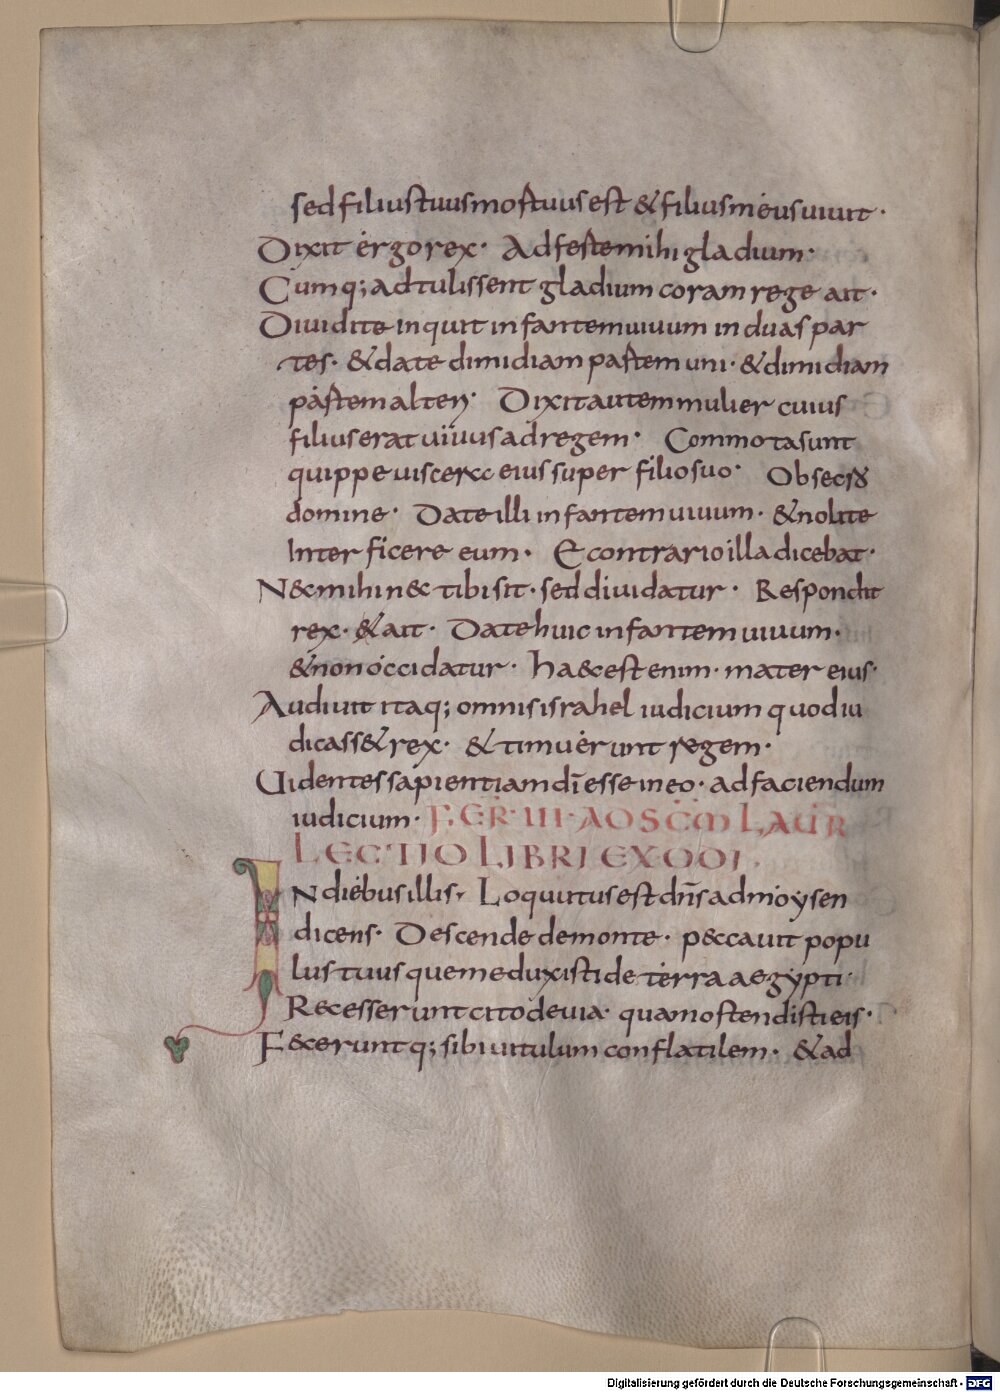 sed filius tuus mortuus est & filius meus uiuit ·
Dixit ergo rex · Adferte mihi gladium ·
Cumq; adtulissent gladium coram rege ait ·
Diuidite inquit infantem uiuum in duas par
tes · & date dimidiam partem uni · & dimidiam
partem alteri · Dixit autem mulier cuius
filius erat uiuus ad regem · Commota sunt
quippe uiscera eius super filio suo · Obsecro
domine · Date illi infantem uiuum · & nolite
interficere eum · E contrario illa dicebat ·
N&mihi n&tibi sit · sed diuidatur · Respondit
rex · & ait · Date huic infantem uiuum ·
& non occidatur · Ha&c est enim · mater eius ·
Audiuit itaq; omnis israhel iudicium quod iu
dicass& rex · & timuerunt regem ·
Uidentes sapientiam dī esse in eo · ad faciendum
iudicium · FER · III · AD SCM LAUR
LECTIO LIBRI EXODI ·
IN diebus illis · Loquutus est dn̄s ad moysen
dicens · Descende de monte · peccauit popu
lus tuus quem eduxisti de terra aegypti ·
Recesserunt cito de uia · quam ostendisti eis ·
F&cerunt q; sibi uitulum conflatilem · & ad
Digitalisierung gefördert durch die Deutsche Forschungsgemeinschaft - DFG